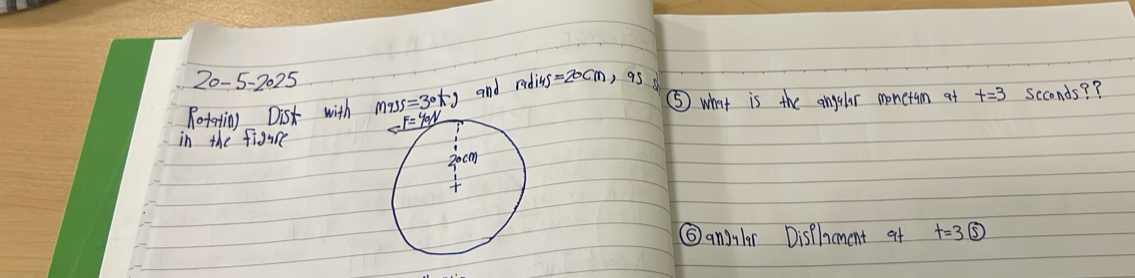 20-5-2025
Rotating Disk with mass=30kg and radius=20cm, as s
in the figure
F=40N
20cm
⑤ what is the angular monetum at t=3 seconds??
⑥ angular Displacment at t=3 Ⓢ